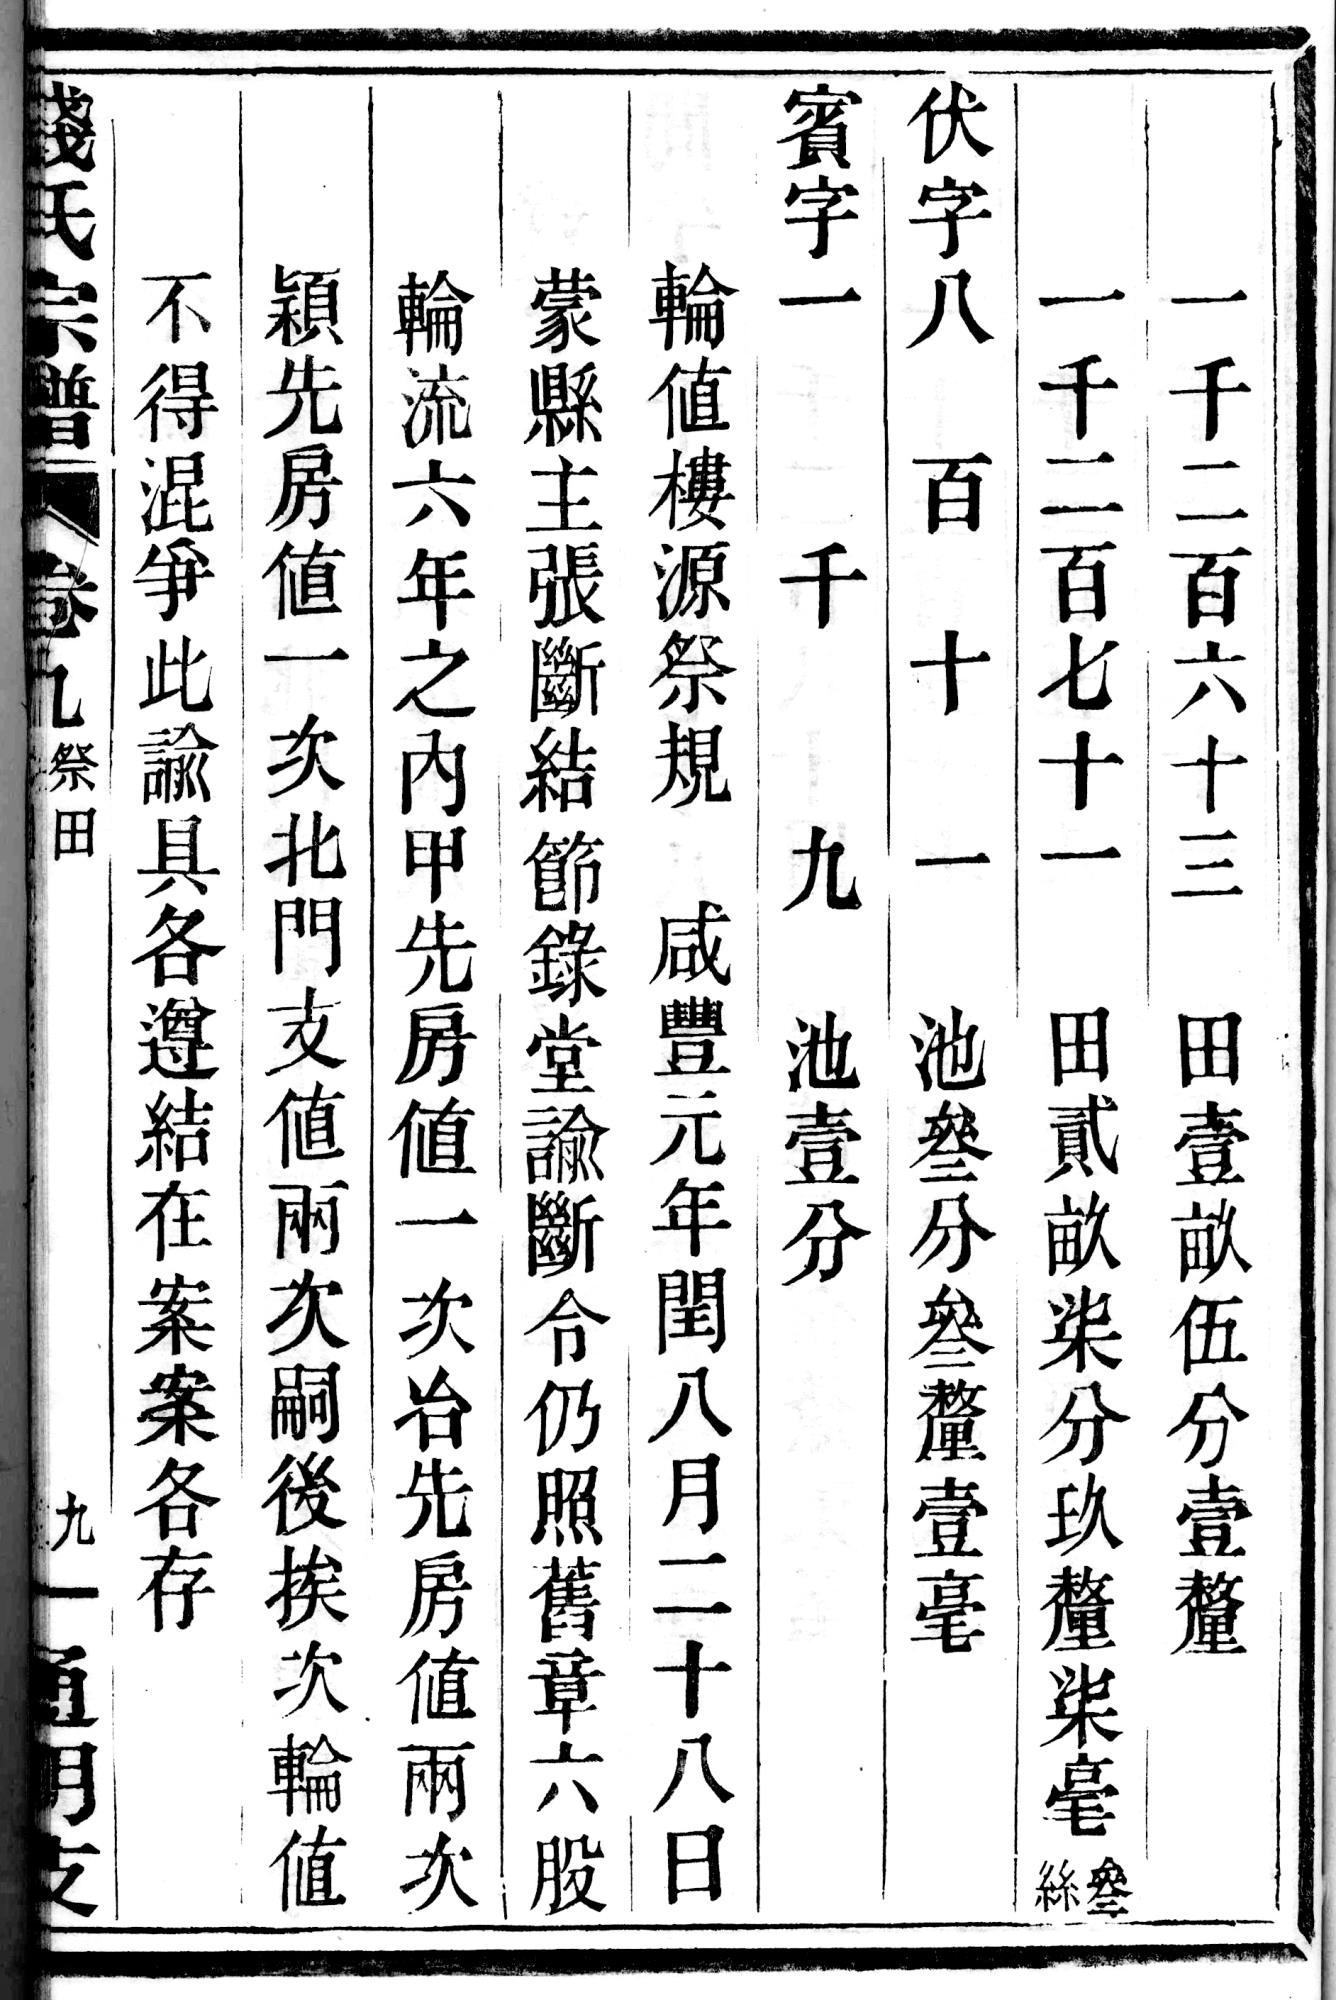 一千二百六十三　田壹畝伍分壹釐
一千二百七十一　田貳畝柒分玖釐柒毫叄絲
伏字八百十一　池叄分叄釐壹毫
賓字一千九　池壹分
輪値樓源祭規　咸豐元年閏八月二十八日
蒙縣主張斷結節錄堂諭斷令仍照舊章六股
輪流六年之內甲先房値一次治先房値兩次
穎先房値一次北門支値兩次嗣後挨次輪値
不得混爭此諭具各遵結在案案各存
錢氏宗譜　卷九　祭田　九　通明支